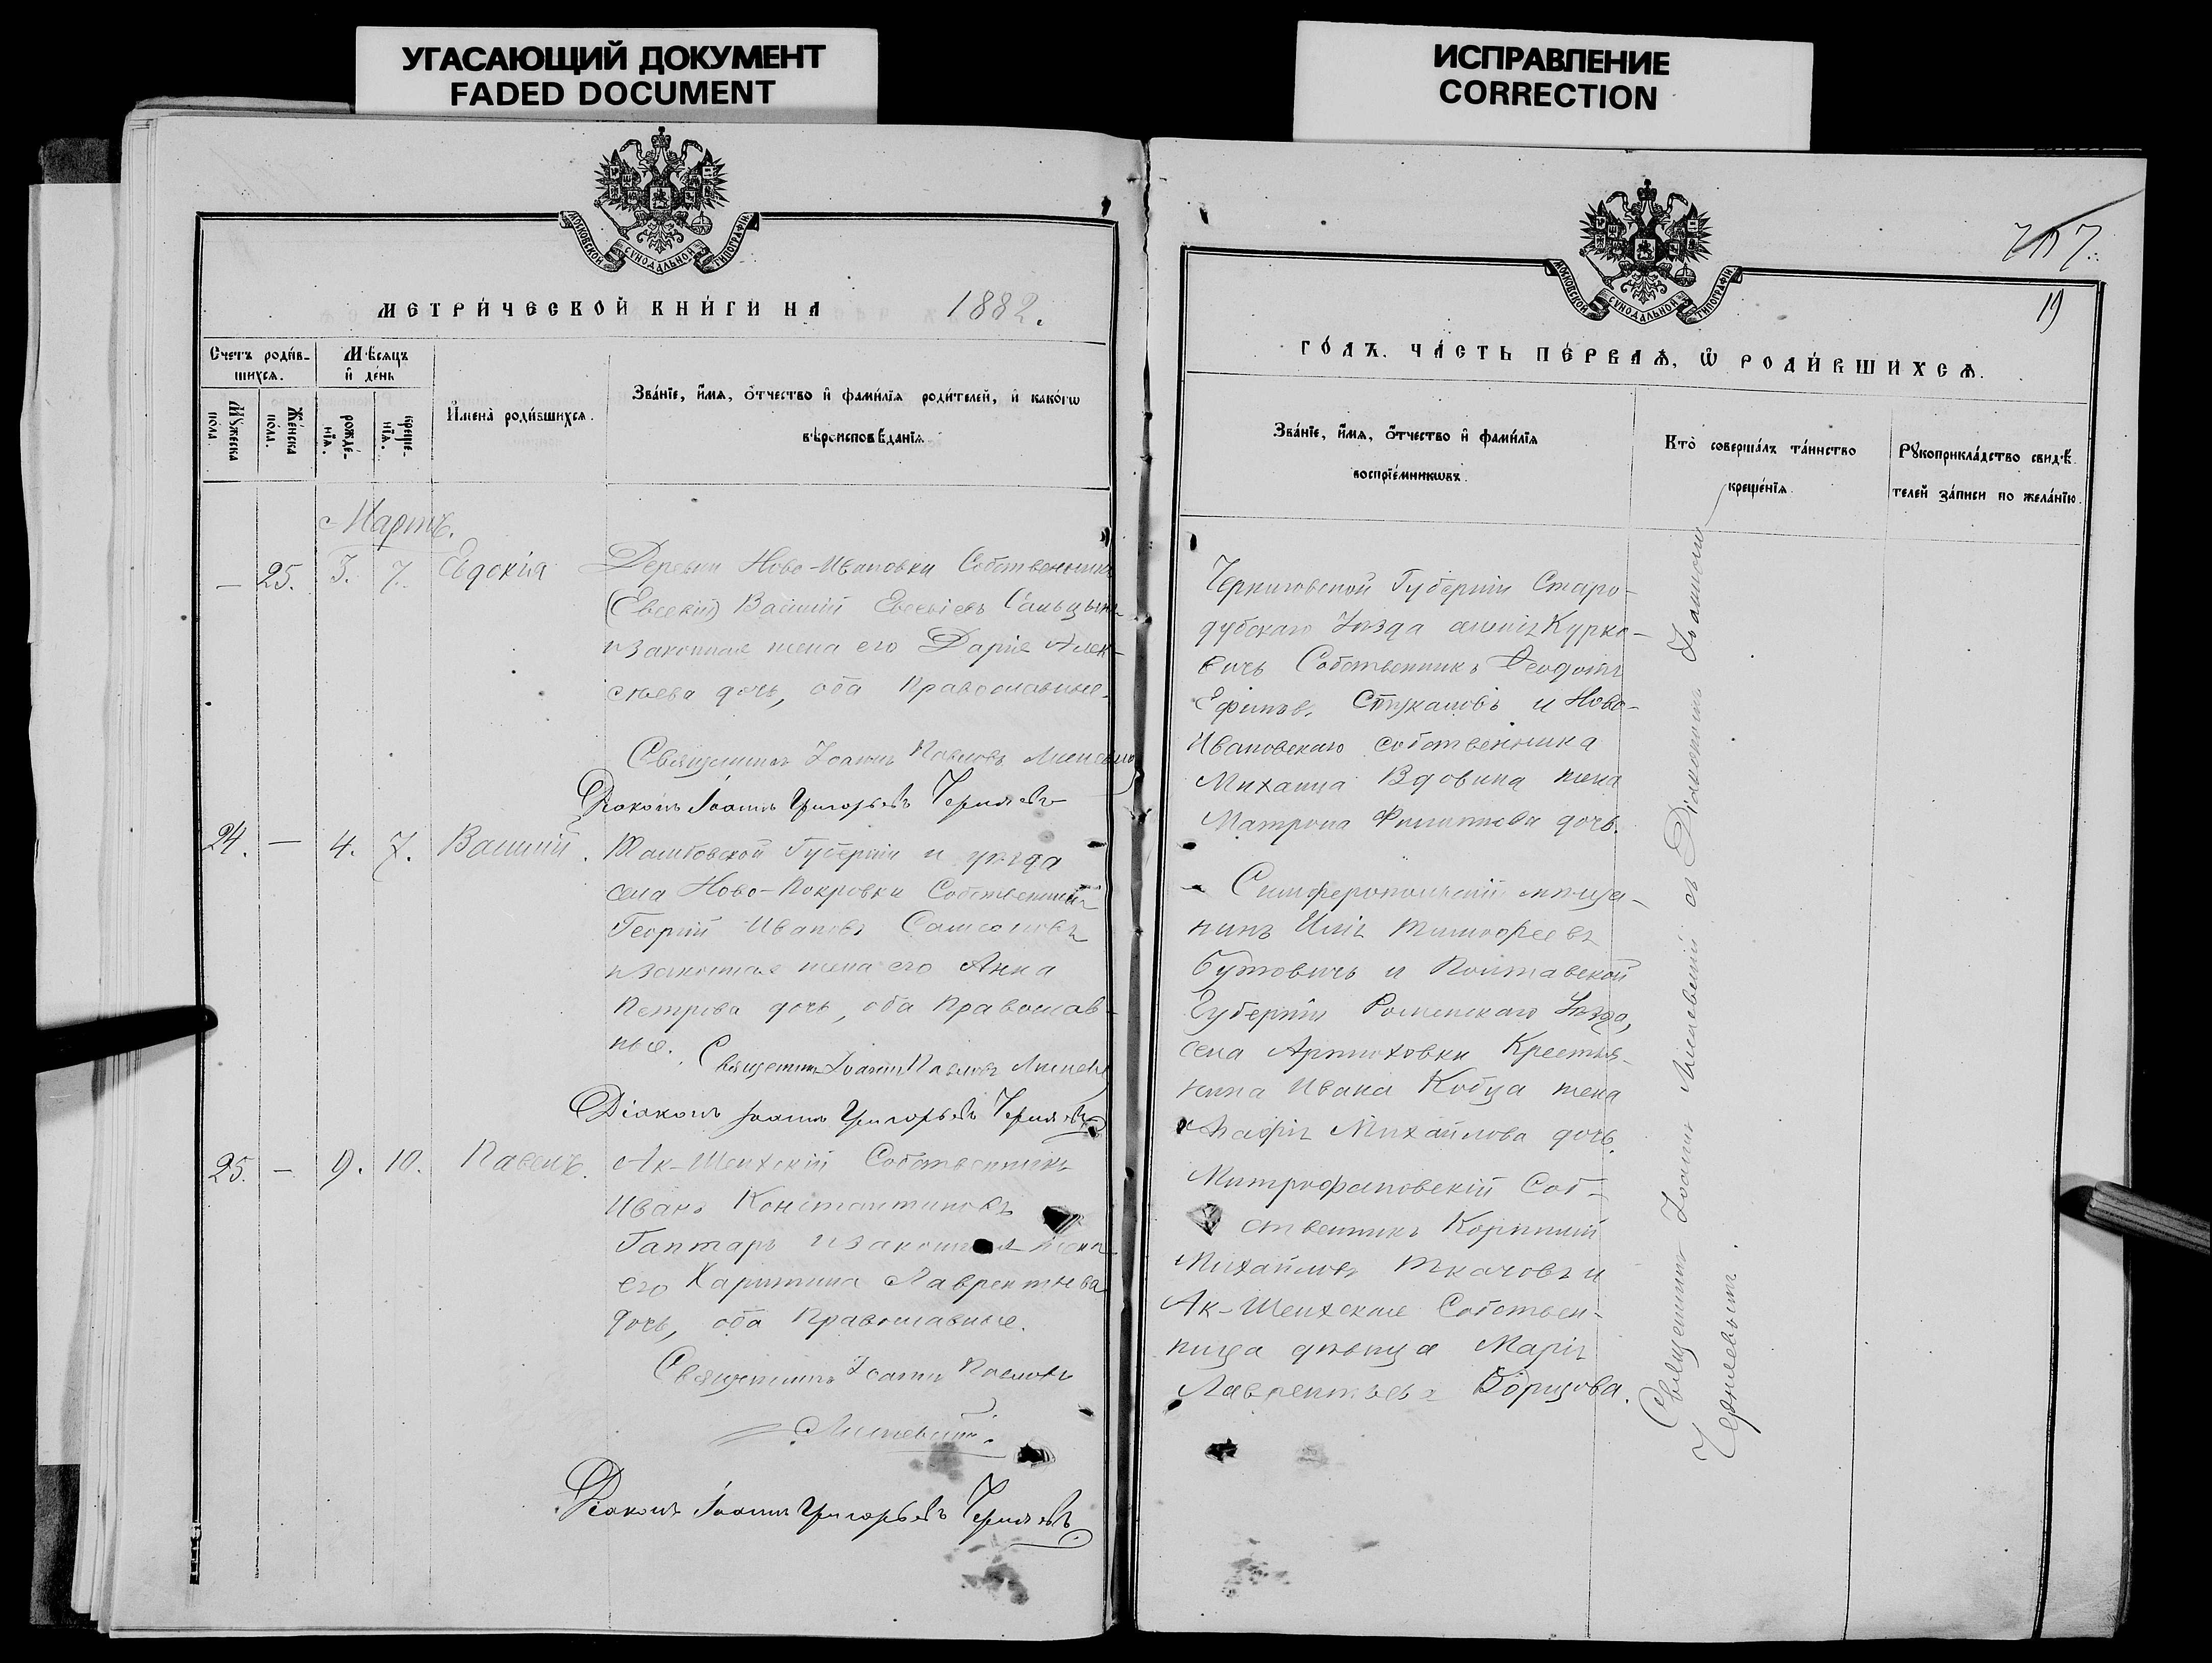 УГАСАЮЩИЙ ДОКУМЕНТ
FADED DOCUMENT
ИСПРАВЛЕНИЕ
CORRECTION
МОСКОВСКОЙ СѴНОДАЛЬНОЙ ТИПОГРАФІИ
МЕТРИ́ЧЕСКОЙ КНИ́ГИ НА 1882.
Счетъ роди́в-
шихся.
Мꙋжеска
по́ла.
Же́нска
по́ла.
Мѣсяцъ
и҆ де́нь
рожде́-
нїѧ.
креще́-
нїѧ.
И҆мена̀ роди́вшихся.
Зва́нїе, и҆́мѧ, ѻ҆́тчество и҆ фами́лїѧ роди́телей, и҆ како́гѡ
вѣроисповѣ́данїѧ
Мартъ.
— 25. 3. 7. Евдокія
Деревни Ново-Ивановки Собственникъ
(Евсекій) Василій Евсевіевъ
и законная жена его Дарія Алек-
сѣева дочь, оба Православные.
Священникъ Іоаннъ Павловъ
Діаконъ Іоаннъ Григорьевъ Чернявъ
24. — 4. 7. Василій.
Тамбовской Губерніи и уѣзда
села Ново-Покровки Собственникъ
Георгій Ивановъ Самсоновъ
и законная жена его Анна
Петрова дочь, оба Православ-
ные.
Священникъ Іоаннъ Павловъ
Діаконъ Іоаннъ Григорьевъ
25. — 9. 10. Павелъ.
Ак-Шеихскій Собственникъ
Иванъ Константиновъ
Гаптарь и законная жена
его Харитина Лаврентьева
дочь, оба Православные.
Священникъ Іоаннъ Павловъ
Діаконъ Іоаннъ Григорьевъ
МОСКОВСКОЙ СѴНОДАЛЬНОЙ ТИПОГРАФІИ
19
ГО́ДЪ. ЧА́СТЬ ПЕ́РВАѦ, Ѿ РОДИ́ВШИХСѦ.
Зва́нїе, и҆́мѧ, ѻ҆́тчество и҆ фами́лїѧ
воспрїе́мникѡвъ.
Кто̀ соверша́лъ та́инство
креще́нїѧ.
Рꙋкоприкла́дство свидѣ́-
телей за́писи по жела́нїю.
Черниговской Губерніи Старо-
дубскаго Уѣзда Курко-
вичь Собственникъ Ѳеодотъ
Ефимовъ Стукаловъ и Ново-
Ивановскаго собственника
Михаила Вдовина жена
Матрона Филиппова дочь.
Симферопольскій мѣща-
нинъ Илія Тимофеевъ
Бутовичъ и Полтавской
Губерніи Роменскаго Уѣзда,
села Артюховки Крестья-
нина Ивана Кобца жена
Агафія Михайлова дочь.
Митрофановскій Соб-
ственникъ Корнилій
Михайловъ Ткачовъ и
Ак-Шеихская Собствен-
ница дѣвица Марія
Лаврентьева Борщова.
Священникъ Іоаннъ съ Діакономъ Іоанномъ